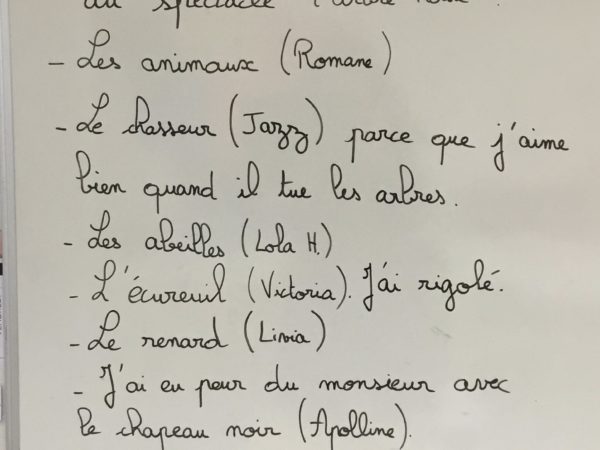 au spectacle
- Les animaux (Romane)
- Le chasseur (Jazz) parce que j'aime
bien quand il tue les arbres.
- Les abeilles (Lola H.)
- L'écureuil (Victoria). J'ai rigolé.
- Le renard (Livia)
- J'ai eu peur du monsieur avec
le chapeau noir (Apolline).